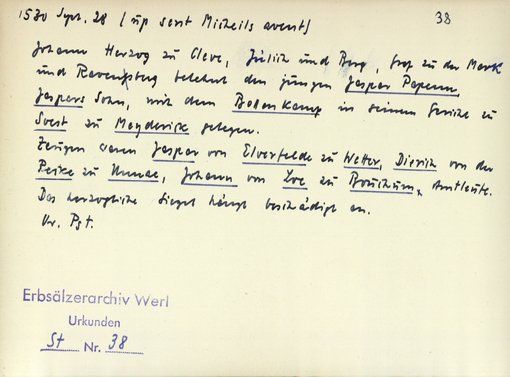 1530 Sept. 28 (up sent Micheils avent)
38
Johann Herzog zu Cleve, Jülich und Berg, Graf zu der Mark
und Ravensberg belehnt den jungen Jaspar Papenn,
Jaspars Sohn, mit dem Bolenkamp in seinem Gericht zu
Soest zu Meyderick gelegen.
Zeugen waren Jaspar von Elverfelde zu Wetter, Dierich von der
Recke zu Unnae, Johann von Loe zu Bouchum, Amtleute.
Das herzogliche Siegel hängt beschädigt an.
Or. Pgt.
Erbsälzerarchiv Werl
Urkunden
St Nr. 38